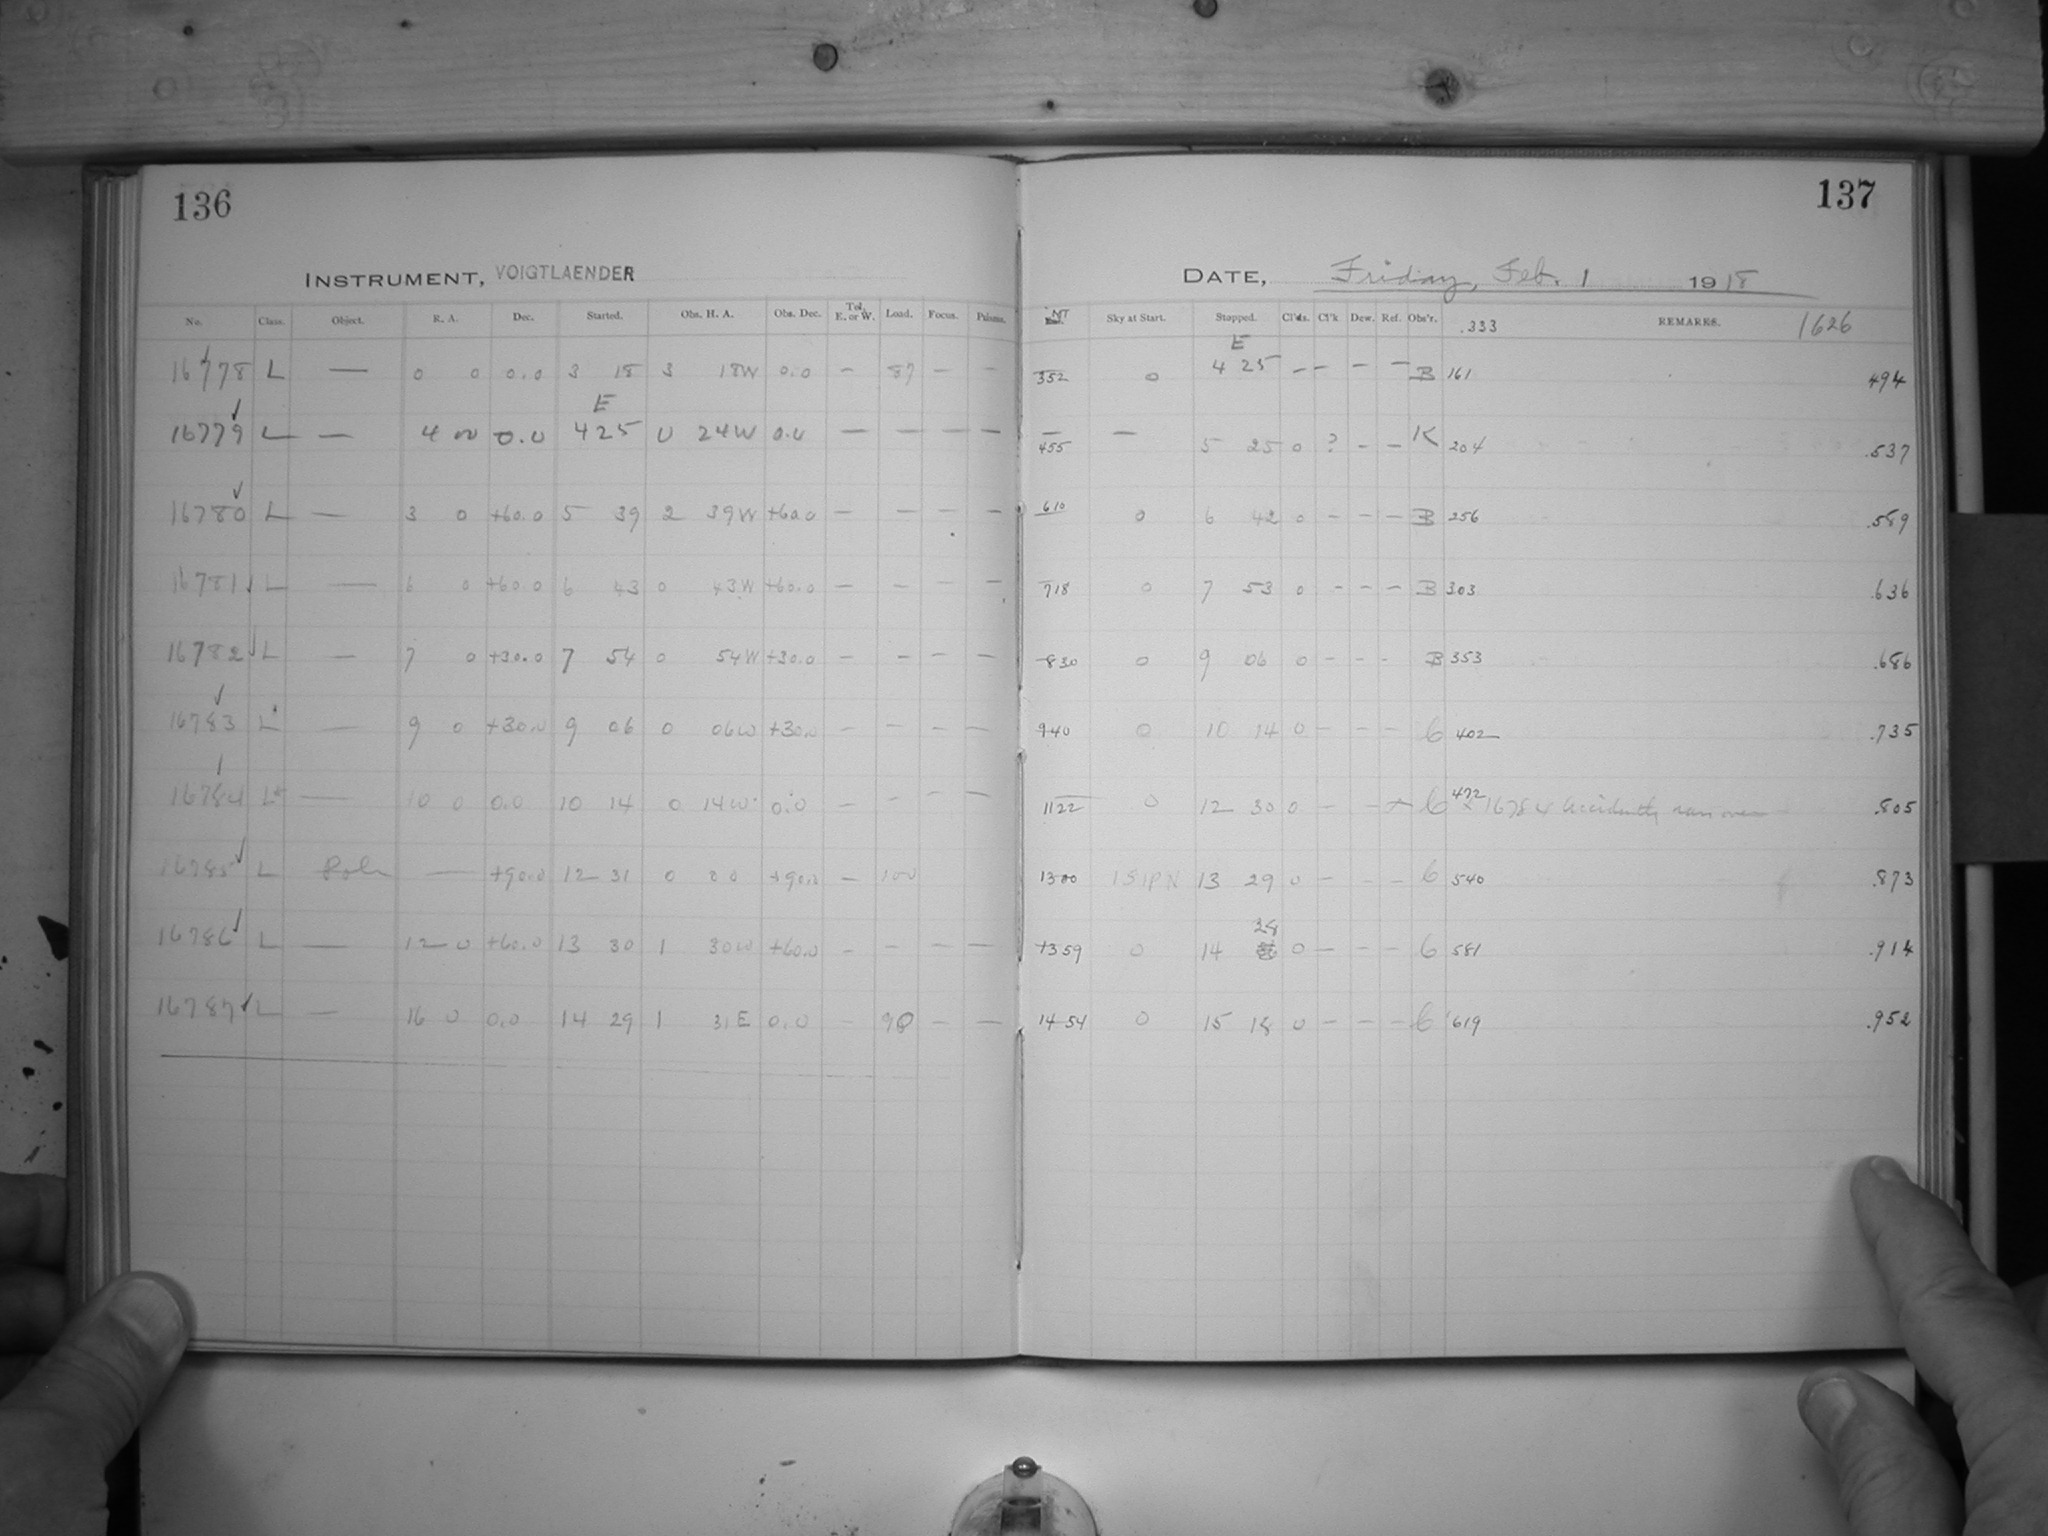 136
137
INSTRUMENT, VOIGTLAENDER
DATE, Friday, Feb. 1 1918
No. Class. Object. R. A. Dec. Started. Obs. H. A. Obs. Dec. Tel. E. or W. Load. Focus. Prisms. INT Sky at Start. Stopped. Cl'ds. Cl'k Dew. Ref. Obs'r. .333 REMARKS. 1626
16778 L — 0 0 0.0 3 18 3 18W 0.0 — 87 — — 352 0 E 4 25 — — — — B 161 494
16779 L — 4 00 0.0 E 4 25 0 24W 0.0 — — — — 455 — 5 25 0 ? — — K 204 .537
16780 L — 3 0 +60.0 5 39 2 39W +60.0 — — — — 610 0 6 42 0 — — — B 256 .589
16781 L — 6 0 +60.0 6 43 0 43W +60.0 — — — — 718 0 7 53 0 — — — B 303 .636
16782 L — 7 0 +30.0 7 54 0 54W +30.0 — — — — 830 0 9 06 0 — — - B 353 .686
16783 L — 9 0 +30.0 9 06 0 06W +30.0 — — — — 940 0 10 14 0 — — — 6 402 .735
16784 L* — 10 0 0.0 10 14 0 14W 0.0 — — — — 1122 0 12 30 0 — — — 6 472 * 16784 Accidently ran over .805
16785 L Pole — +90.0 12 31 0 00 +90.0 — 100 1300 13 29 0 — — — 6 540 .873
16786 L — 12 0 +60.0 13 30 1 30W +60.0 — — — — 1359 0 14 28 0 — — — 6 581 .914
16787 L — 16 0 0.0 14 29 1 31E 0.0 — 98 — — 1454 0 15 18 0 — — — 6 619 .952